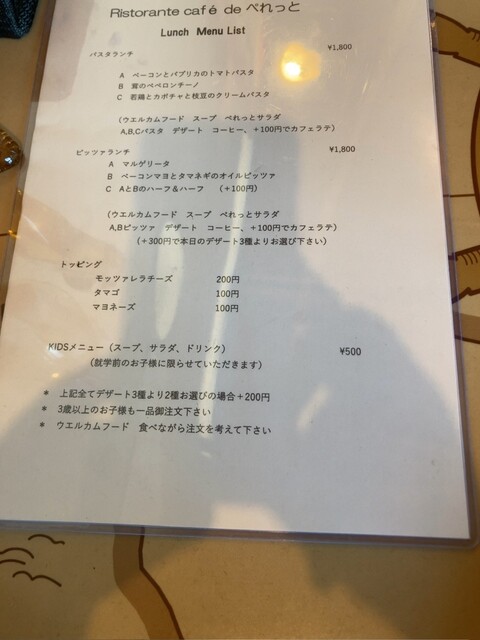 Ristorante café de ぺれっと
Lunch Menu List
パスタランチ ¥1,800
A ベーコンとパプリカのトマトパスタ
B 茸のペペロンチーノ
C 若鶏とカボチャと枝豆のクリームパスタ
(ウエルカムフード スープ ぺれっとサラダ
A,B,Cパスタ デザート コーヒー、+100円でカフェラテ)
ピッツァランチ ¥1,800
A マルゲリータ
B ベーコンマヨとタマネギのオイルピッツァ
C AとBのハーフ&ハーフ (+100円)
(ウエルカムフード スープ ぺれっとサラダ
A,Bピッツァ デザート コーヒー、+100円でカフェラテ)
(+300円で本日のデザート3種よりお選び下さい)
トッピング
モッツァレラチーズ 200円
タマゴ 100円
マヨネーズ 100円
KIDSメニュー(スープ、サラダ、ドリンク) ¥500
(就学前のお子様に限らせていただきます)
* 上記全てデザート3種より2種お選びの場合+200円
* 3歳以上のお子様も一品御注文下さい
* ウエルカムフード 食べながら注文を考えて下さい